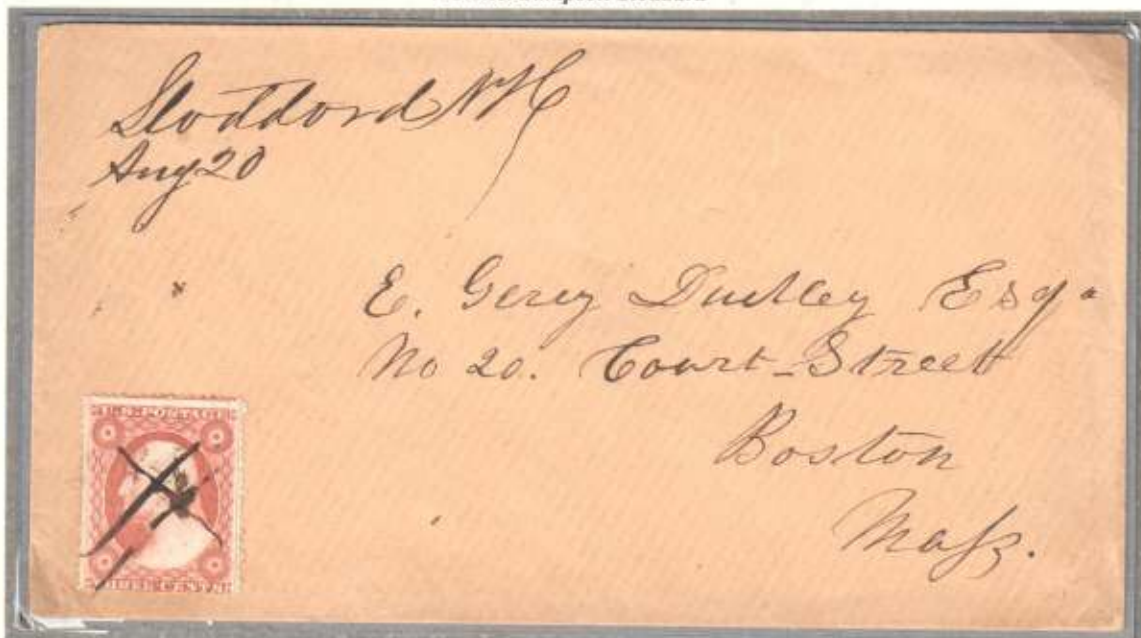 Stoddard NH
Aug 20
E. Gerey Dudley Esq.
No 20. Court-Street
Boston
Mass.
U.S. POSTAGE
THREE CENTS